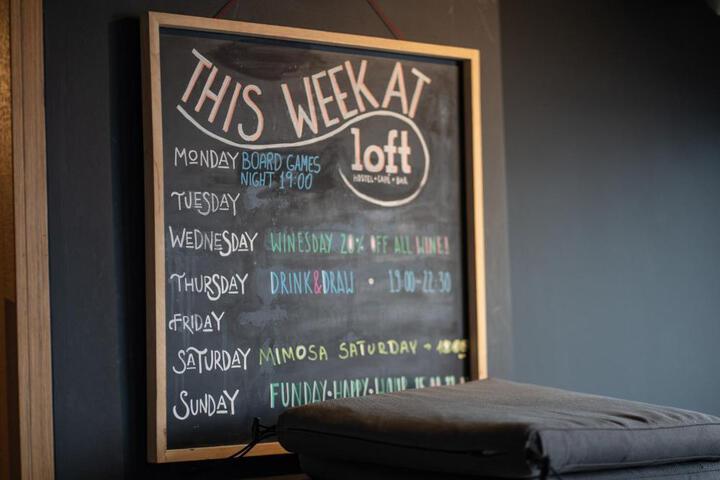 THIS WEEK AT
loft
HOSTEL • CAFÉ • BAR
MONDAY BOARD GAMES
NIGHT 19:00
TUESDAY
WEDNESDAY WINESDAY 20% OFF ALL WINE!
THURSDAY DRINK&DRAW • 19:00-22:30
FRIDAY
SATURDAY MIMOSA SATURDAY →
SUNDAY FUNDAY•HAPPY•HOUR